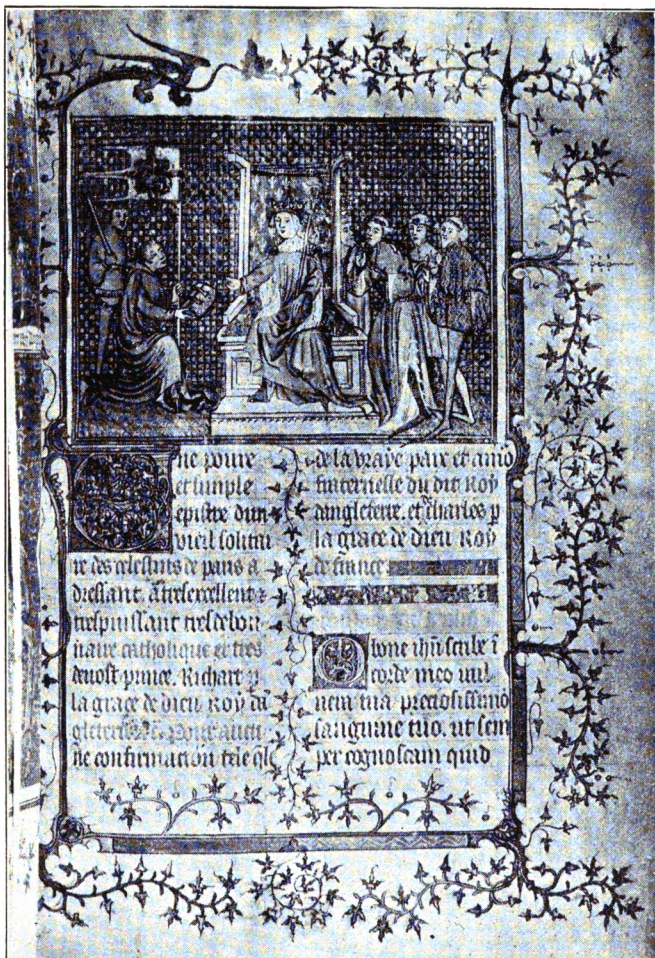 ne povre
et simple
epistre dun
vieil solitai
re des celestins de paris a
dressant. a tresexcellent
trespuissant tresdebon
naire catholique et tres
devost prince. Richart p
la grace de dieu roy dā
gleterre
ne confirmacion tele qle
de la vraye paix et amo
fraternelle du dit Roy
dangleterre. et charles p
la grace de dieu Roy
de france
O bone ihū scribe ī
corde meo vul
nera tua preciosissimo
sanguine tuo. ut sem
per cognoscam quid